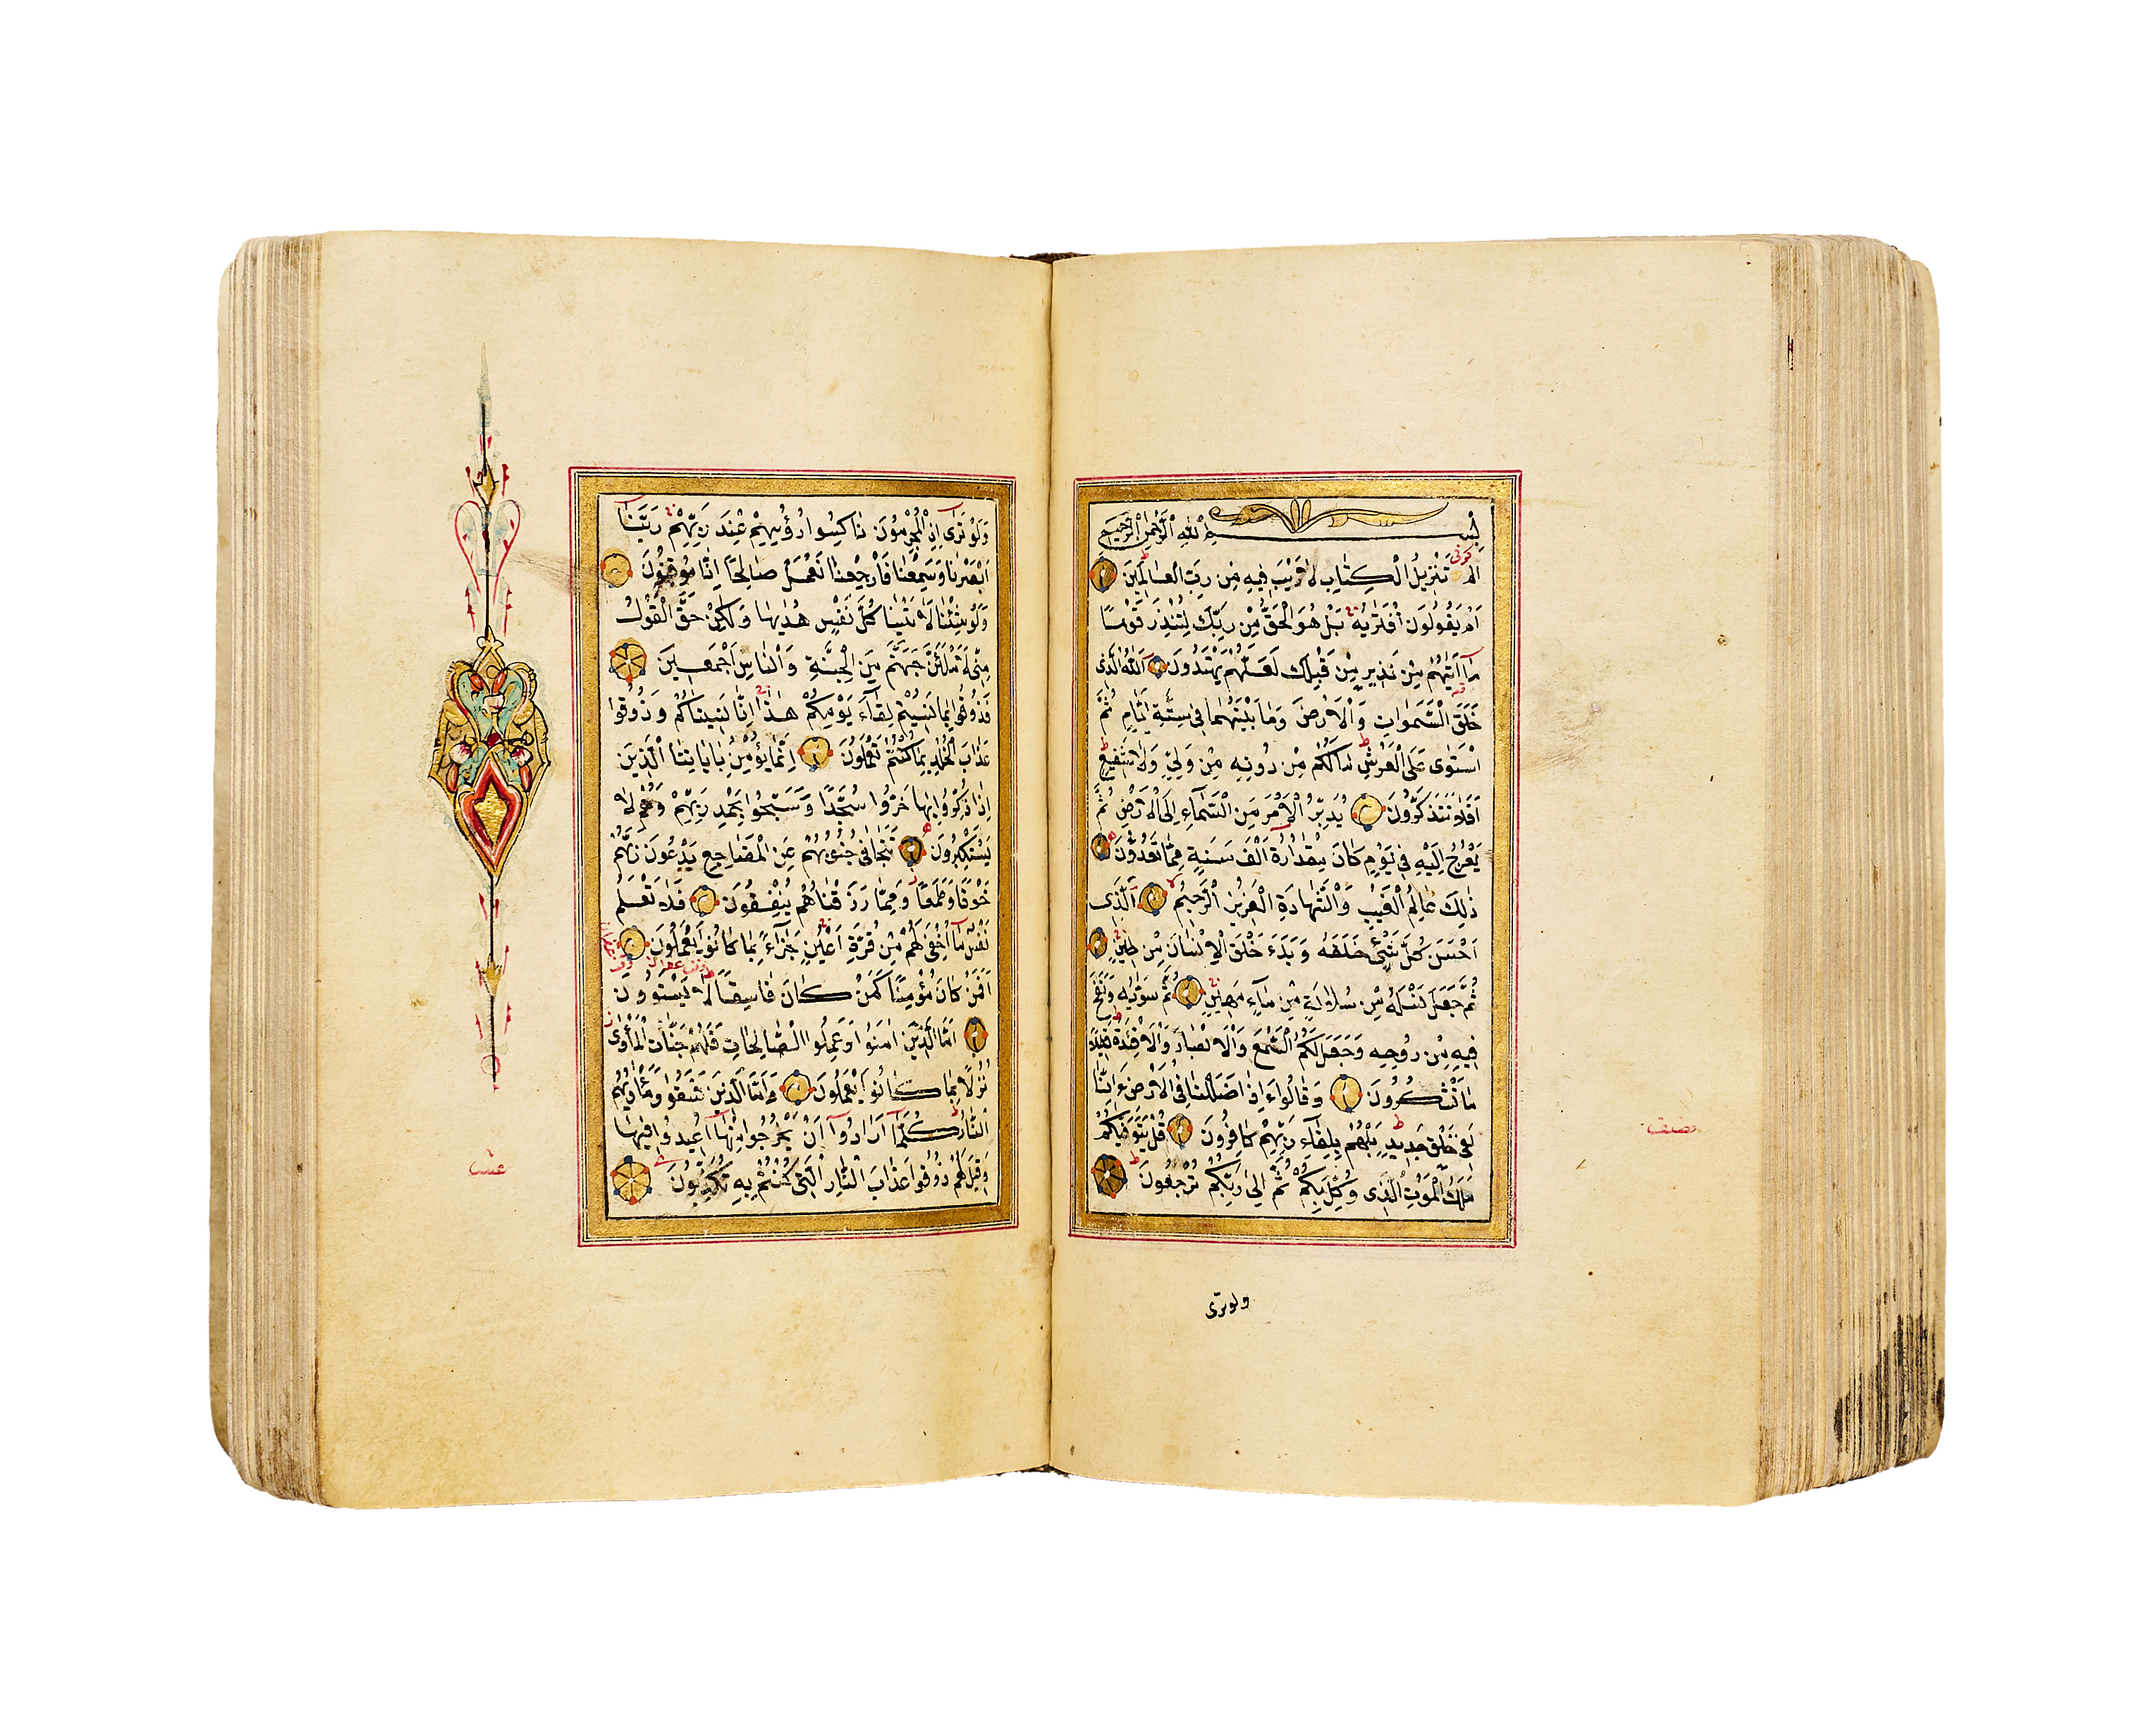 بسم الله الرحمن الرحيم
كوفى
الم تَنْزِيلُ الْكِتَابِ لَا رَيْبَ فِيهِ مِنْ رَبِّ الْعَالَمِينَ
اَمْ يَقُولُونَ افْتَرٰيهُ بَلْ هُوَ الْحَقُّ مِنْ رَبِّكَ لِتُنْذِرَ قَوْمًا
مَٓا اَتٰيهُمْ مِنْ نَذِيرٍ مِنْ قَبْلِكَ لَعَلَّهُمْ يَهْتَدُونَ اَللّٰهُ الَّذِى
خَلَقَ السَّمٰوَاتِ وَالْاَرْضَ وَمَا بَيْنَهُمَا فِى سِتَّةِ اَيَّامٍ ثُمَّ
اسْتَوٰى عَلَى الْعَرْشِ مَالَكُمْ مِنْ دُونِهِ مِنْ وَلِىٍّ وَلَا شَفِيعٍ
اَفَلَا تَتَذَكَّرُونَ يُدَبِّرُ الْاَمْرَ مِنَ السَّمَٓاءِ اِلَى الْاَرْضِ ثُمَّ
يَعْرُجُ اِلَيْهِ فِى يَوْمٍ كَانَ مِقْدَارُهُٓ اَلْفَ سَنَةٍ مِمَّا تَعُدُّونَ
ذٰلِكَ عَالِمُ الْغَيْبِ وَالشَّهَادَةِ الْعَزِيزُ الرَّحِيمُ اَلَّذِى
اَحْسَنَ كُلَّ شَىْءٍ خَلَقَهُ وَبَدَءَ خَلْقَ الْاِنْسَانِ مِنْ طِينٍ
ثُمَّ جَعَلَ نَسْلَهُ مِنْ سُلَالَةٍ مِنْ مَٓاءٍ مَهِينٍ ثُمَّ سَوّٰيهُ وَنَفَخَ
فِيهِ مِنْ رُوحِهِ وَجَعَلَ لَكُمُ السَّمْعَ وَالْاَبْصَارَ وَالْاَفْئِدَةَ قَلِيلًا
مَا تَشْكُرُونَ وَقَالُٓوا ءَاِذَا ضَلَلْنَا فِى الْاَرْضِ ءَاِنَّا
لَفِى خَلْقٍ جَدِيدٍ بَلْ هُمْ بِلِقَٓاءِ رَبِّهِمْ كَافِرُونَ قُلْ يَتَوَفّٰيكُمْ
مَلَكُ الْمَوْتِ الَّذِى وُكِّلَ بِكُمْ ثُمَّ اِلٰى رَبِّكُمْ تُرْجَعُونَ
نصف
ولوترى
وَلَوْ تَرٰٓى اِذِ الْمُجْرِمُونَ نَاكِسُوا رُؤُسِهِمْ عِنْدَ رَبِّهِمْ رَبَّنَٓا
اَبْصَرْنَا وَسَمِعْنَا فَارْجِعْنَا نَعْمَلْ صَالِحًا اِنَّا مُوقِنُونَ
وَلَوْ شِئْنَا لَاٰتَيْنَا كُلَّ نَفْسٍ هُدٰيهَا وَلٰكِنْ حَقَّ الْقَوْلُ
مِنِّى لَاَمْلَئَنَّ جَهَنَّمَ مِنَ الْجِنَّةِ وَالنَّاسِ اَجْمَعِينَ
فَذُوقُوا بِمَا نَسِيتُمْ لِقَٓاءَ يَوْمِكُمْ هٰذَا اِنَّا نَسِينَاكُمْ وَذُوقُوا
عَذَابَ الْخُلْدِ بِمَا كُنْتُمْ تَعْمَلُونَ اِنَّمَا يُؤْمِنُ بِاٰيَاتِنَا الَّذِينَ
اِذَا ذُكِّرُوا بِهَا خَرُّوا سُجَّدًا وَسَبَّحُوا بِحَمْدِ رَبِّهِمْ وَهُمْ لَا
يَسْتَكْبِرُونَ تَتَجَافٰى جُنُوبُهُمْ عَنِ الْمَضَاجِعِ يَدْعُونَ رَبَّهُمْ
خَوْفًا وَطَمَعًا وَمِمَّا رَزَقْنَاهُمْ يُنْفِقُونَ فَلَا تَعْلَمُ
نَفْسٌ مَٓا اُخْفِىَ لَهُمْ مِنْ قُرَّةِ اَعْيُنٍ جَزَٓاءً بِمَا كَانُوا يَعْمَلُونَ
اَفَمَنْ كَانَ مُؤْمِنًا كَمَنْ كَانَ فَاسِقًا لَا يَسْتَوُونَ
اَمَّا الَّذِينَ اٰمَنُوا وَعَمِلُوا الصَّالِحَاتِ فَلَهُمْ جَنَّاتُ الْمَأْوٰى
نُزُلًا بِمَا كَانُوا يَعْمَلُونَ وَاَمَّا الَّذِينَ فَسَقُوا فَمَأْوٰيهُمُ
النَّارُ كُلَّمَٓا اَرَادُٓوا اَنْ يَخْرُجُوا مِنْهَٓا اُعِيدُوا فِيهَا
وَقِيلَ لَهُمْ ذُوقُوا عَذَابَ النَّارِ الَّتِى كُنْتُمْ بِهِ تُكَذِّبُونَ
عشر